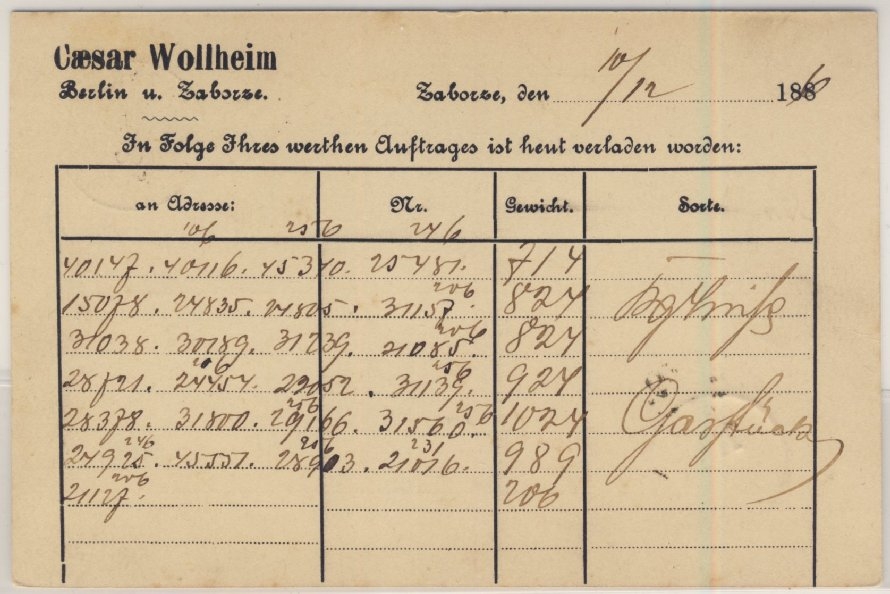 Cæsar Wollheim
Berlin u. Zaborze.
Zaborze, den 10/12 1886
In Folge Ihres werthen Auftrages ist heut verladen worden:
an Adresse: Nr. Gewicht. Sorte.
206 256 246
40147. 40116. 45340. 25481. 714
206
15078. 24835. 24805. 31157. 824
206
31038. 30189. 31239. 21085. 824
206 256
28721. 24454. 22052. 31139. 924
256 256
28378. 31800. 29166. 31560. 1024
246 256 231
24925. 45551. 28903. 21016. 989
206
21127. 206